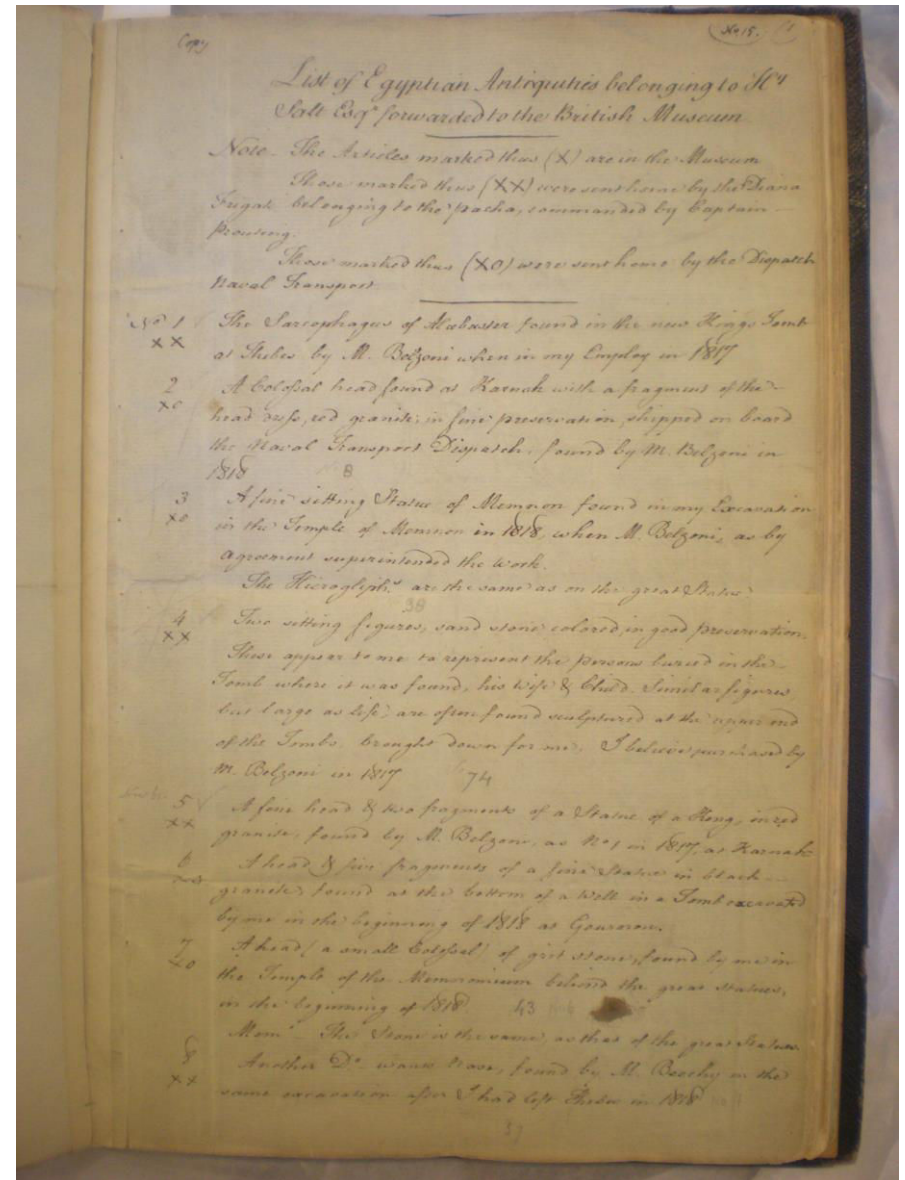 Copy
No 15.
List of Egyptian Antiquities belonging to Hy
Salt Esqr forwarded to the British Museum
Note - The Articles marked thus (X) are in the Museum
Those marked thus (XX) were sent home by the Diana
Frigate belonging to the pacha, commanded by Captain
Prowing.
Those marked thus (XO) were sent home by the Dispatch
Naval Transport
No 1 The Sarcophagus of Alabaster found in the new Kings Tomb
XX at Thebes by M. Belzoni when in my Employ in 1817
2 A Colossal head found at Karnak with a fragment of the
xo head dress, red granite, in fine preservation, shipped on board
the Naval Transport Dispatch. found by M. Belzoni in
1818 8
3 A fine sitting Statue of Memnon found in my Excavation
xo in the Temple of Memnon in 1818, when M. Belzoni, as by
agreement superintended the work.
The Hieroglyphs are the same as on the great Statue
38
4 Two sitting figures, sand stone, colored, in good preservation.
XX These appear to me to represent the persons buried in the
Tomb where it was found, his Wife & Child. Similar figures
but large as life, are often found sculptured at the upper end
of the Tombs, brought down for me. I believe purchased by
M. Belzoni in 1817 74
5 A fine head & two fragments of a Statue of a King, in red
xx granite, found by M. Belzoni, as No 1 in 1817, at Karnak
6 A head & fragments of a fine Statue in black
granite, found at the bottom of a Well in a Tomb excavated
by me in the beginning of 1818 at Gournou.
7 A head (a small Colossal) of grit stone, found by me in
xo the Temple of the Memnonium behind the great statues,
in the beginning of 1818. 43
Mem. The Stone is the same, as that of the great Statues
8 Another Do found by M. Beechy in the
xx same excavation after I had left Thebes in 1818
37